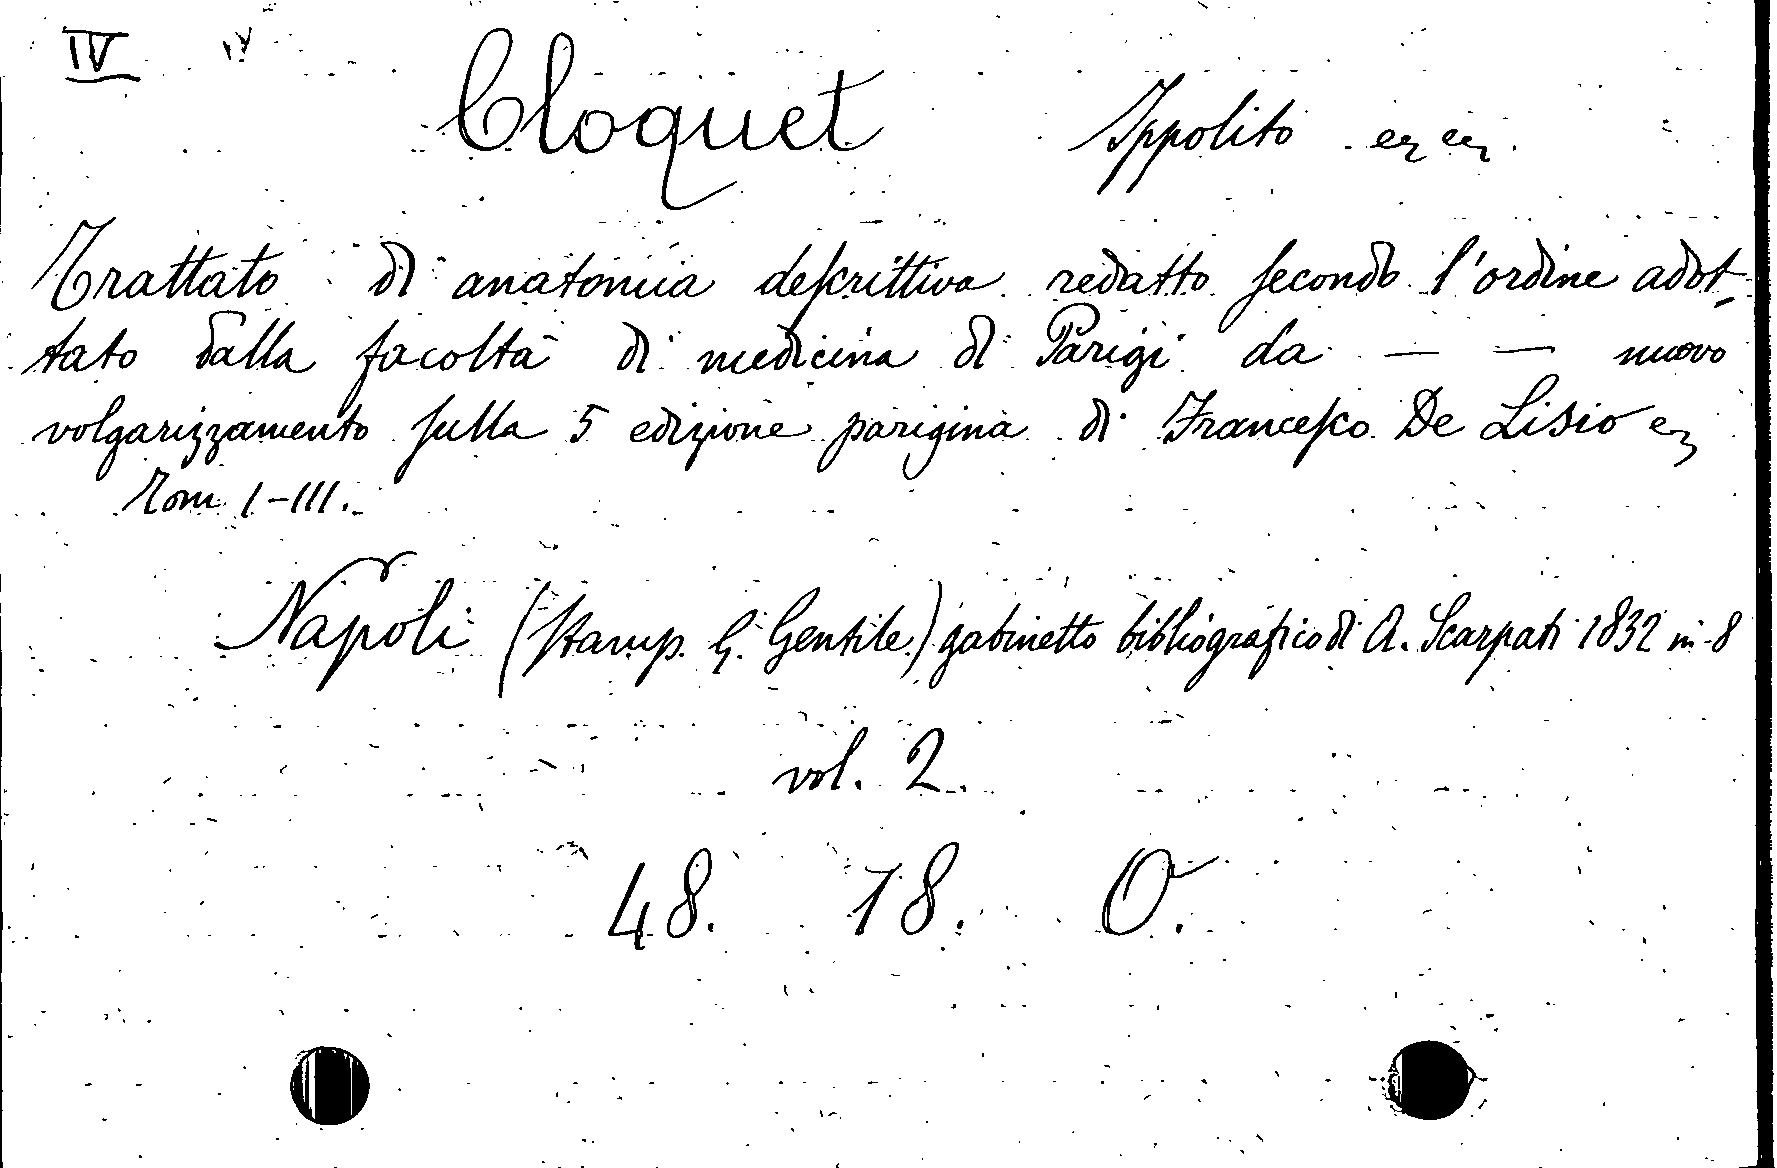 IV IV
Cloquet Ippolito ec ec.
Trattato di anatomia descrittiva redatto secondo l'ordine adot-
tato dalla facoltà di medicina di Parigi da — — nuovo
volgarizzamento sulla 5 edizione parigina di Francesco De Lisio ec
Tom I-III.
Napoli (stamp. G. Gentile) gabinetto bibliografico di A. Scarpati 1832 in-8
vol. 2.
48. 18. O.